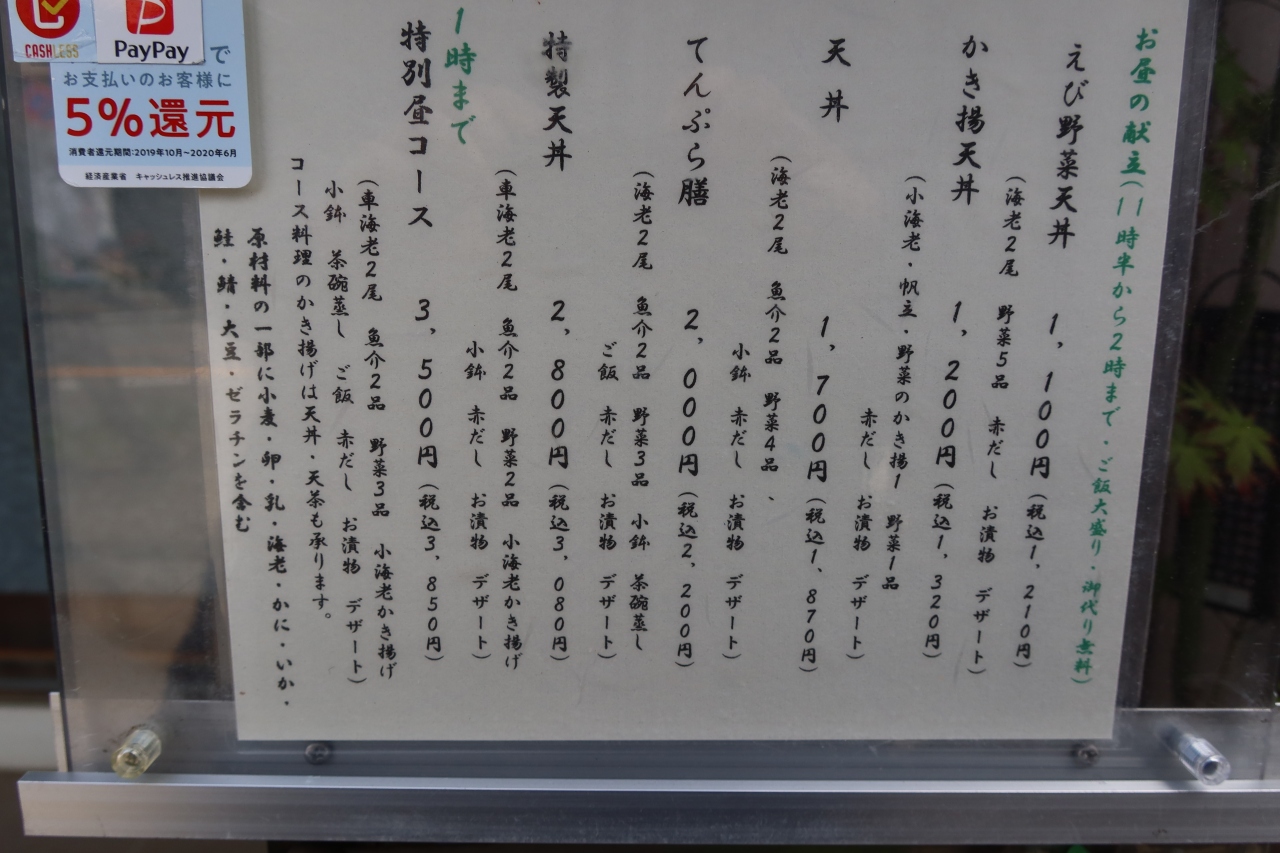 お昼の献立(11時半から2時まで・ご飯大盛り・御代り無料)
えび野菜天丼 1,100円(税込1,210円)
(海老2尾 野菜5品 赤だし お漬物 デザート)
かき揚天丼 1,200円(税込1,320円)
(小海老・帆立・野菜のかき揚1 野菜1品
赤だし お漬物 デザート)
天丼 1,700円(税込1、870円)
(海老2尾 魚介2品 野菜4品、
小鉢 赤だし お漬物 デザート)
てんぷら膳 2,000円(税込2,200円)
(海老2尾 魚介2品 野菜3品 小鉢 茶碗蒸し
ご飯 赤だし お漬物 デザート)
特製天丼 2,800円(税込3,080円)
(車海老2尾 魚介2品 野菜2品 小海老かき揚げ
小鉢 赤だし お漬物 デザート)
1時まで
特別昼コース 3,500円(税込3,850円)
(車海老2尾 魚介2品 野菜3品 小海老かき揚げ
小鉢 茶碗蒸し ご飯 赤だし お漬物 デザート)
コース料理のかき揚げは天丼・天茶も承ります。
原材料の一部に小麦・卵・乳・海老・かに・いか・
鮭・鯖・大豆・ゼラチンを含む
CASHLESS
PayPay
で
お支払いのお客様に
5%還元
消費者還元期間:2019年10月~2020年6月
経済産業省 キャッシュレス推進協議会